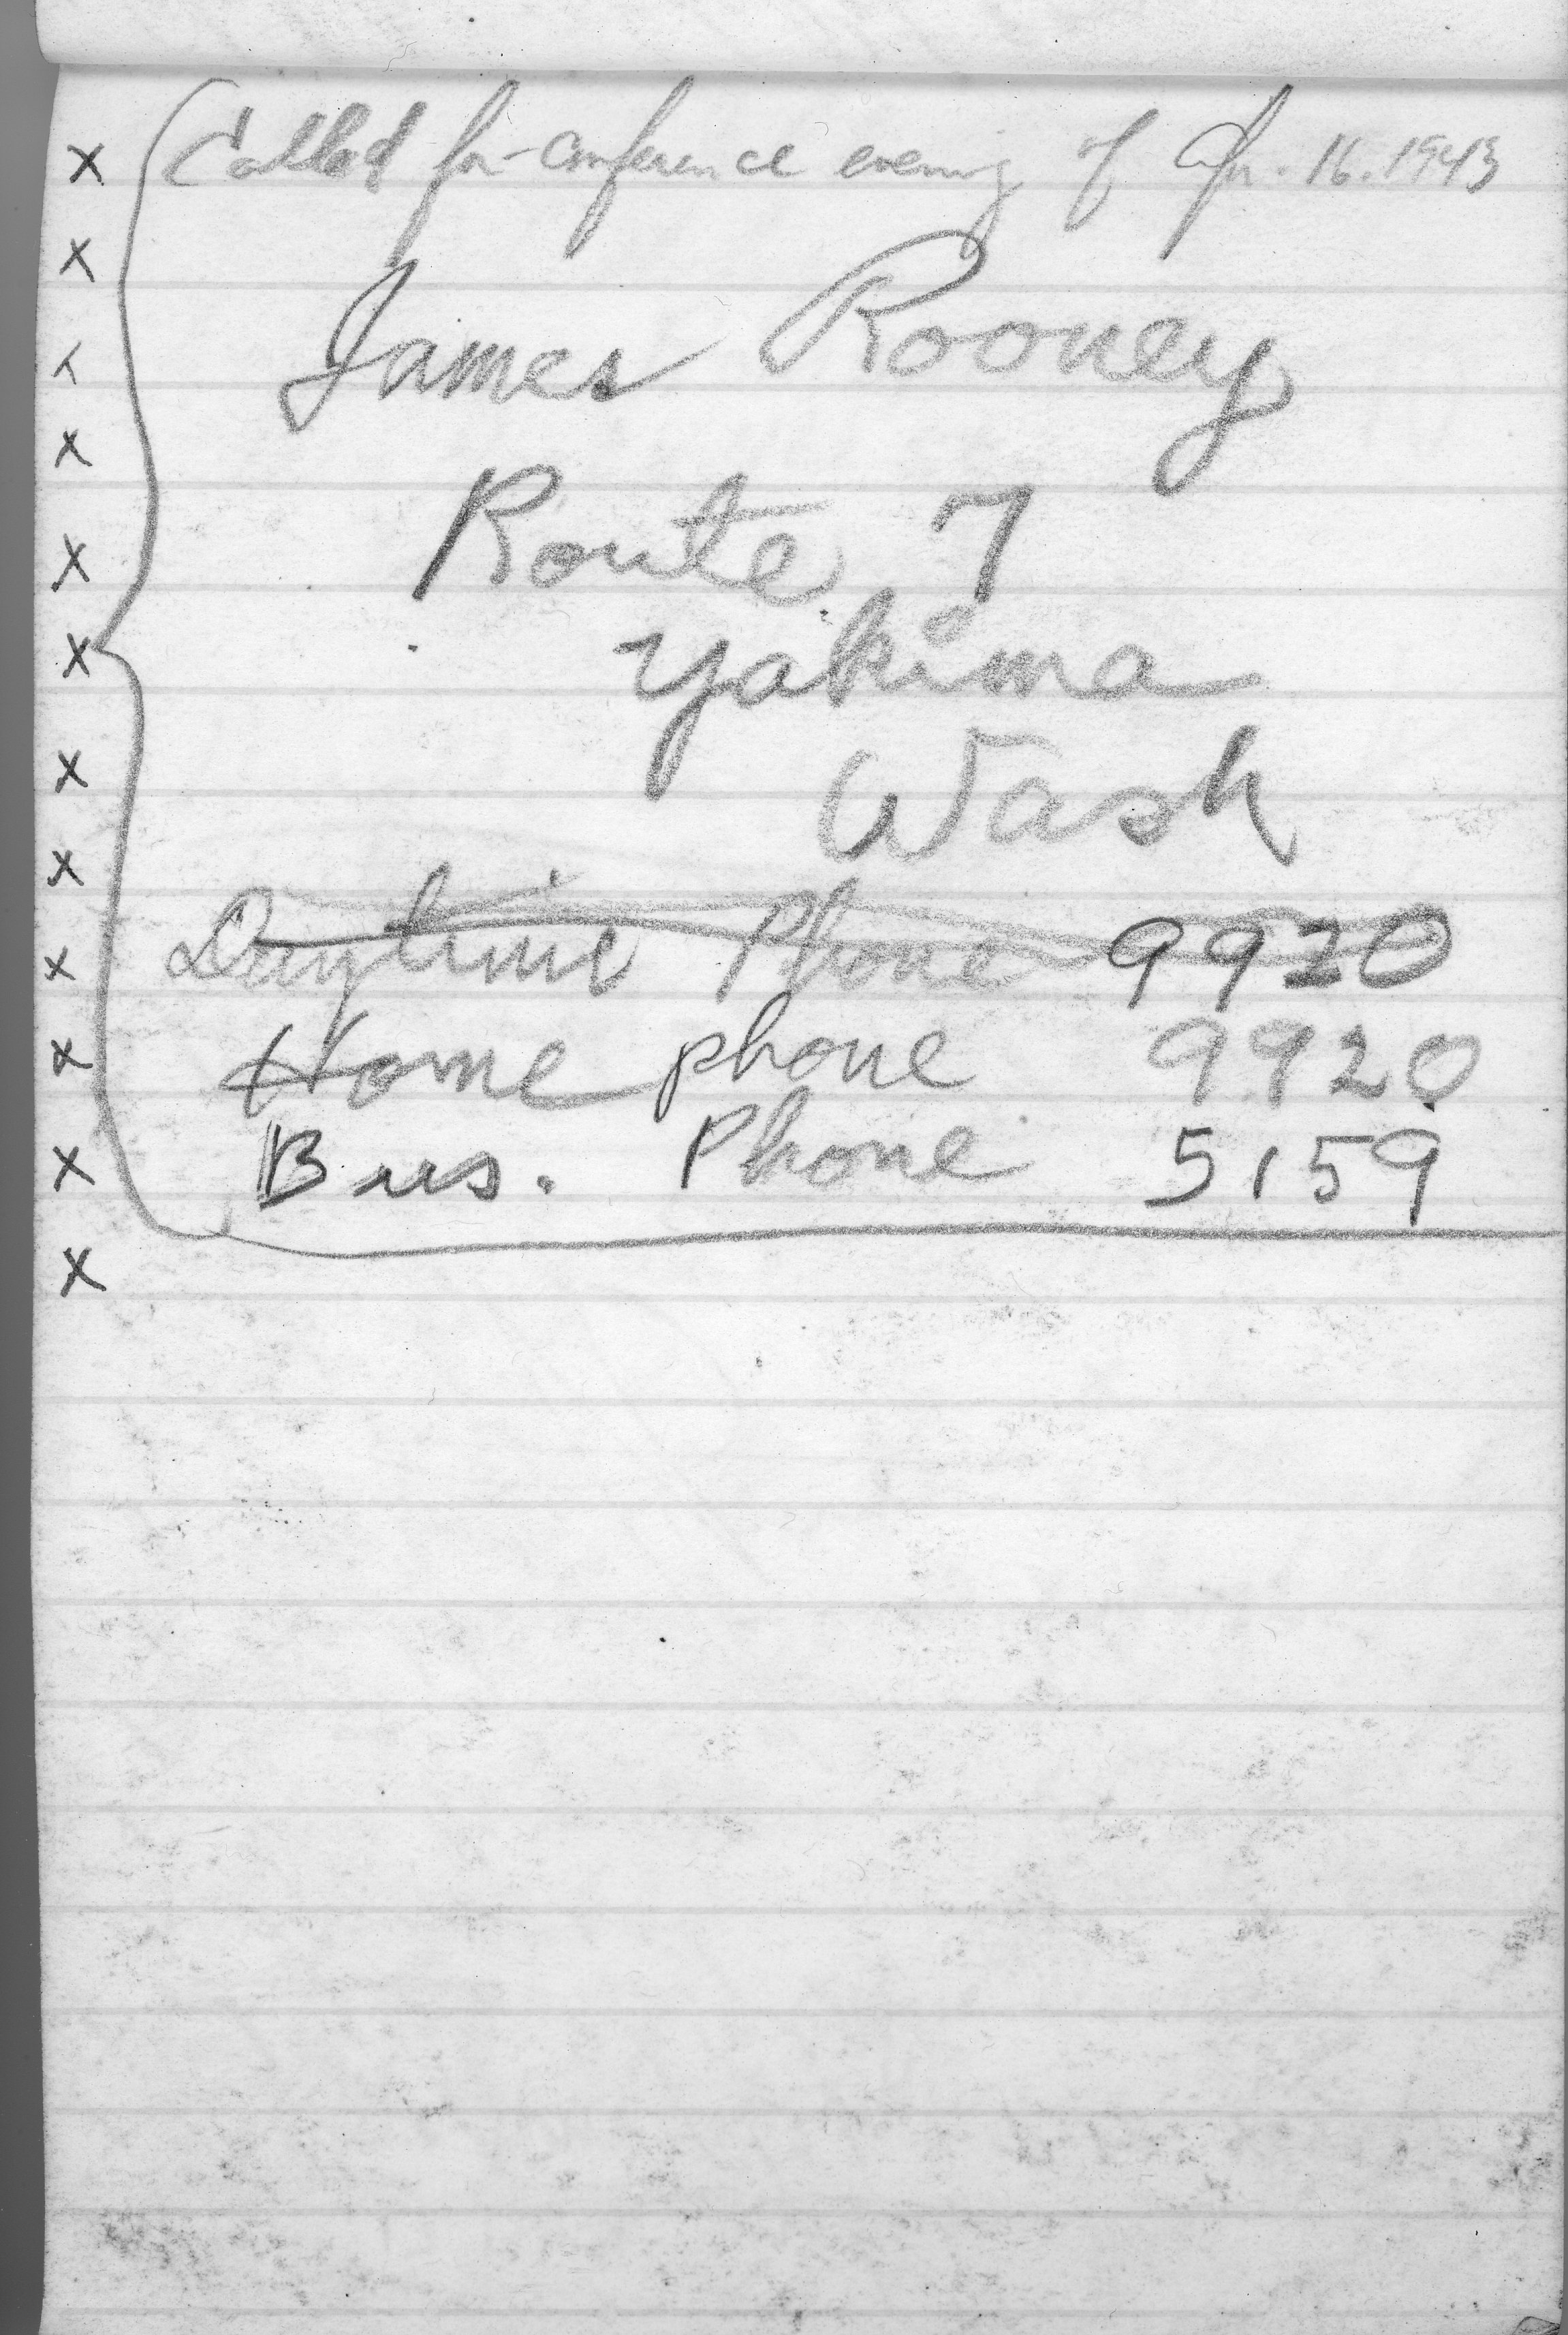 x Called for conference evening of Apr. 16. 1943
x
x James Rooney
x
x Route 7
x Yakima
x Wash
x
x Daytime Phone 9920
x Home phone 9920
x Bus. Phone 5159
x